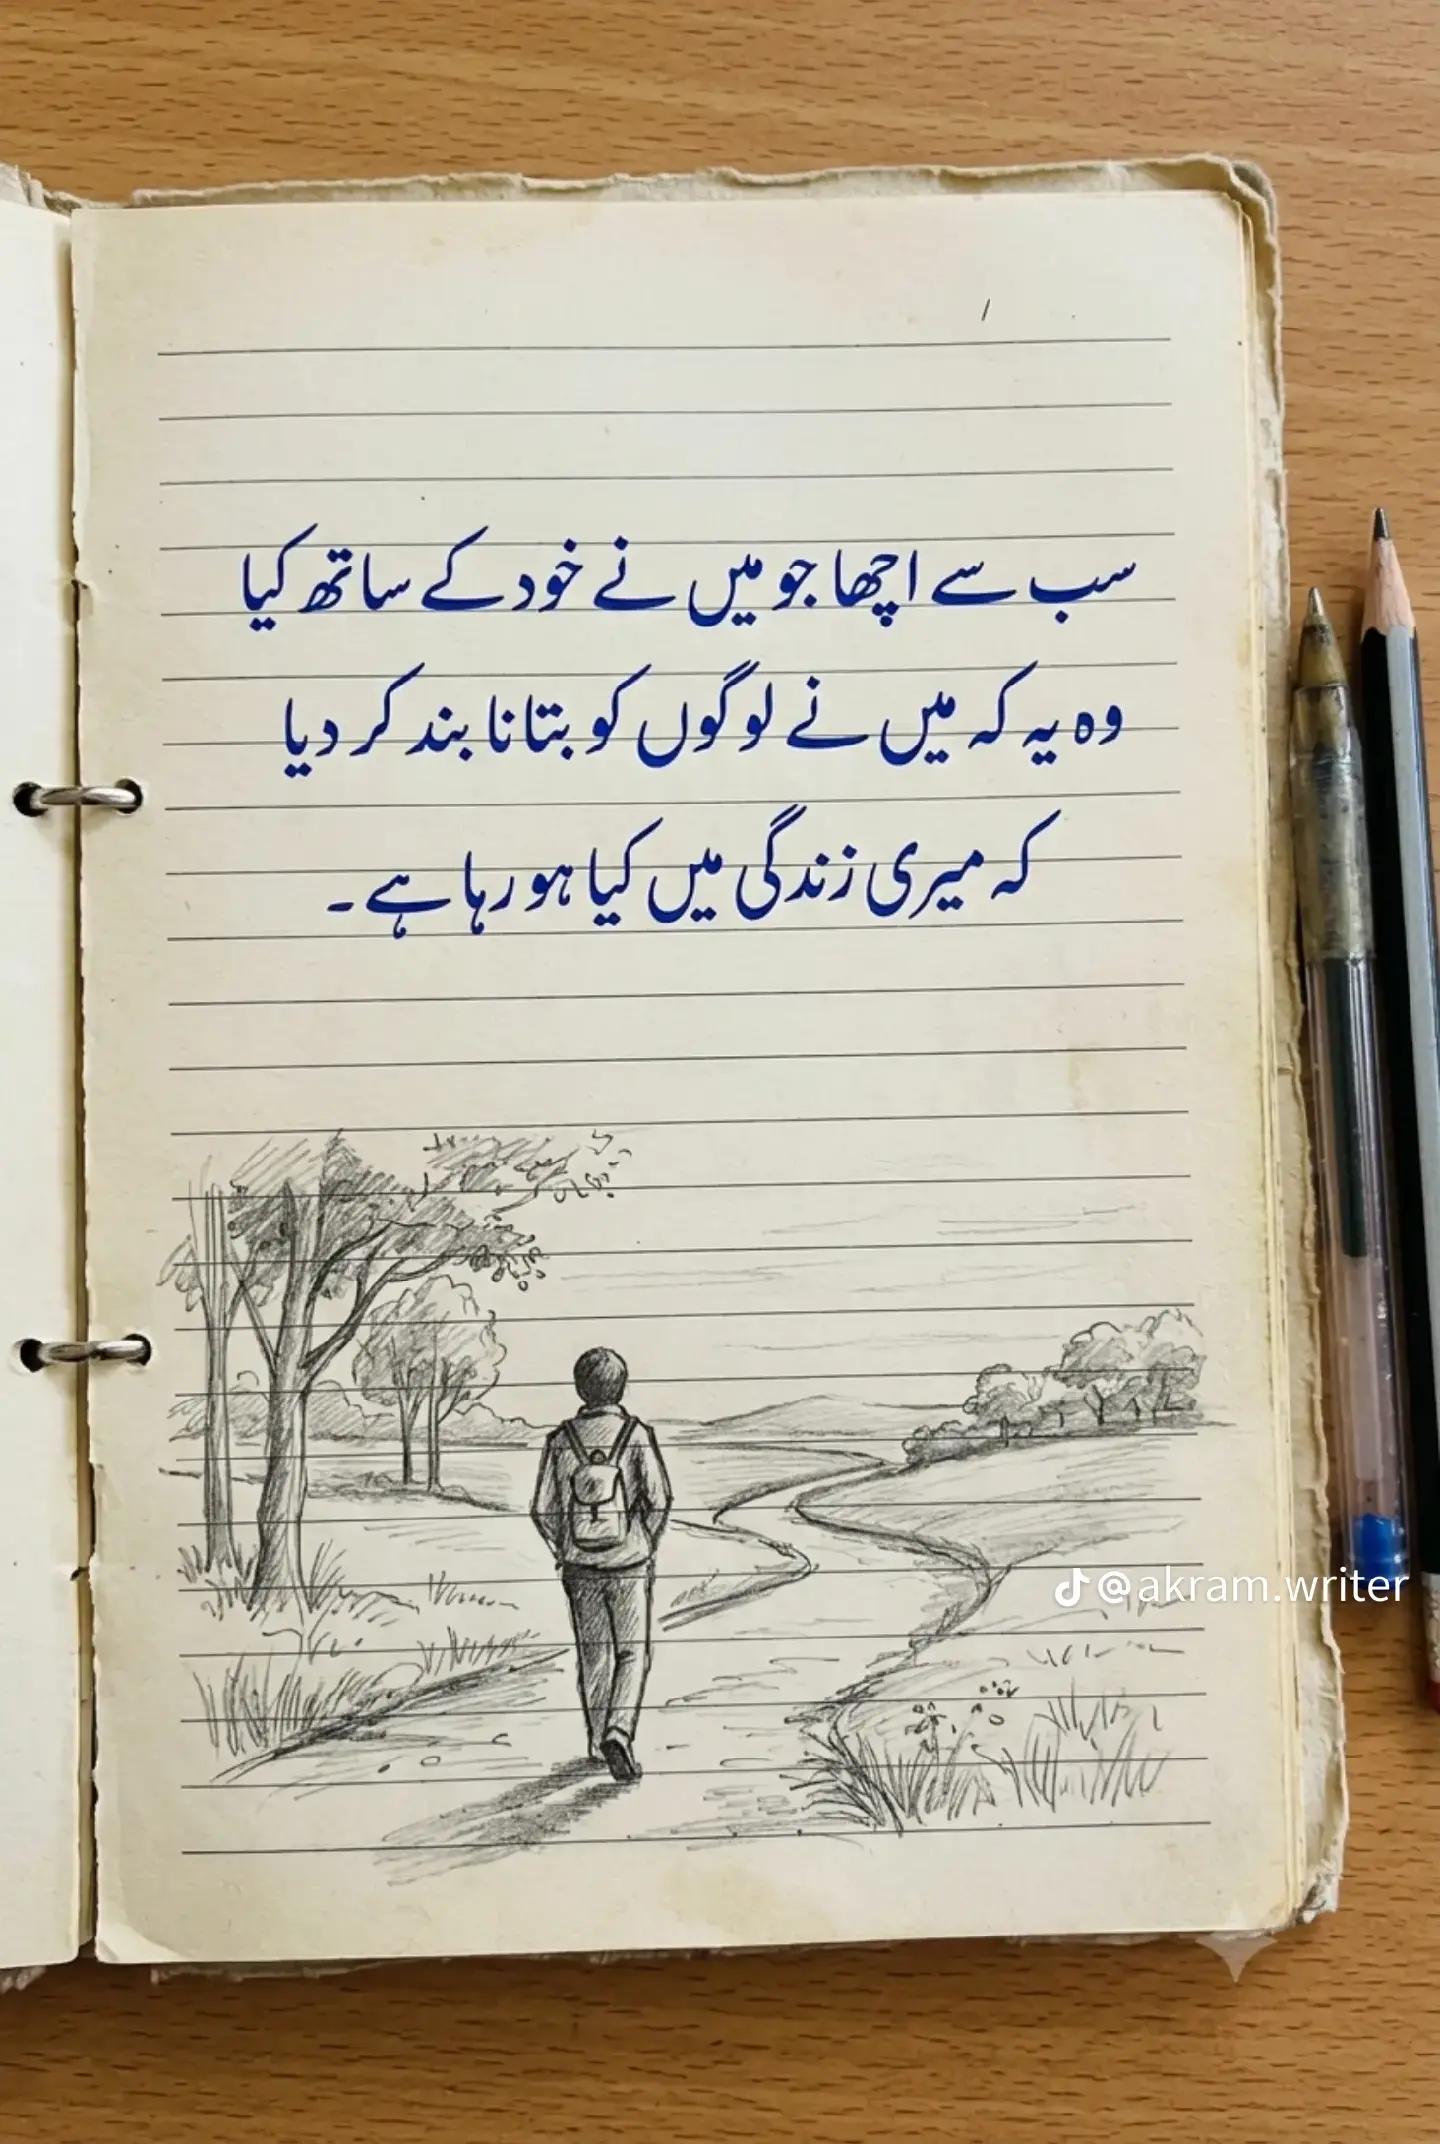 سب سے اچھا جو میں نے خود کے ساتھ کیا
وہ یہ کہ میں نے لوگوں کو بتانا بند کر دیا
کہ میری زندگی میں کیا ہو رہا ہے۔
@akram.writer